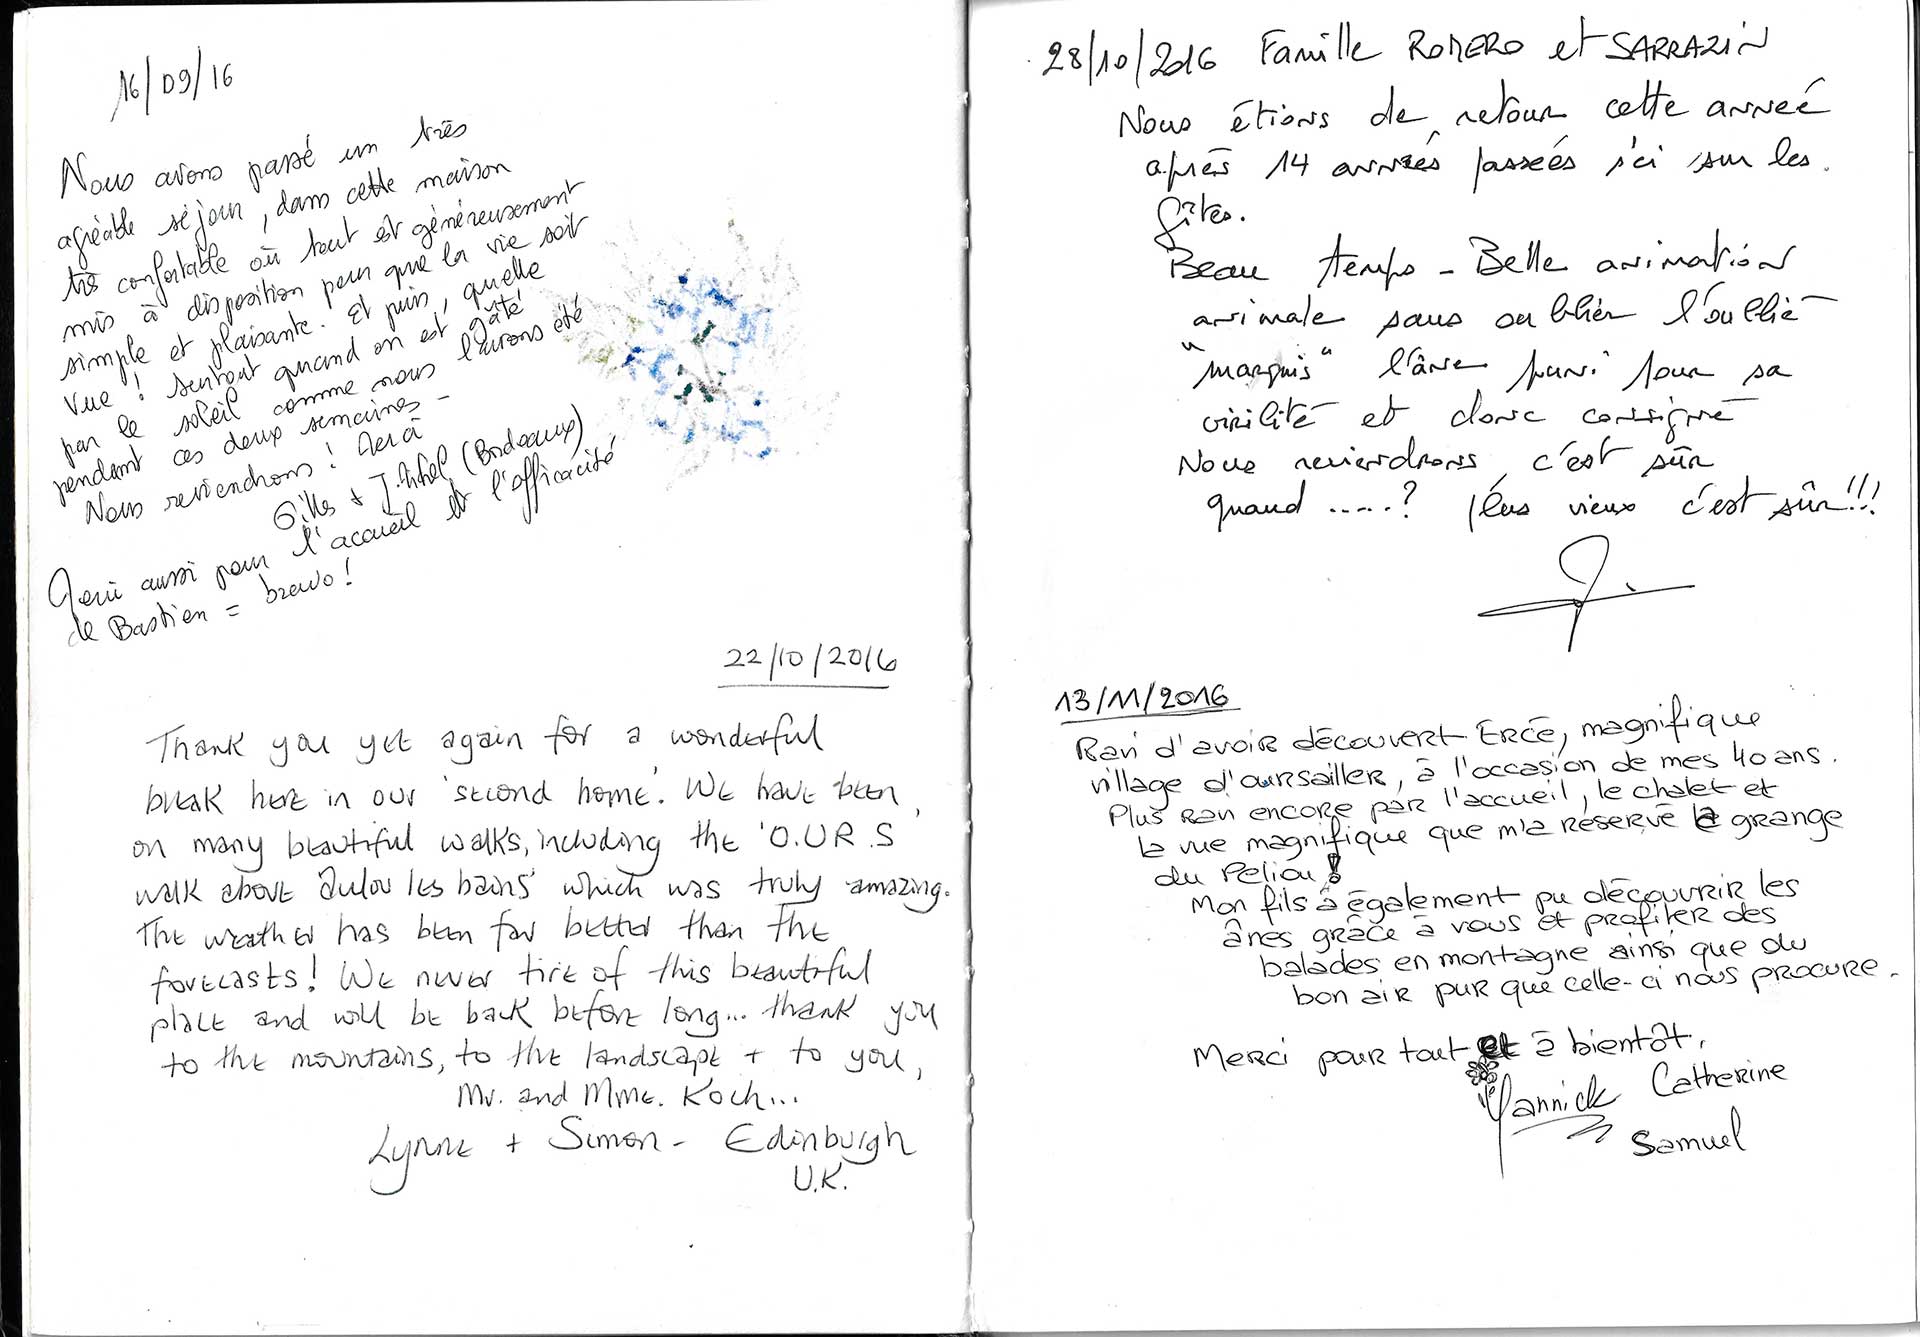 16/09/16
Nous avons passé un très
agréable séjour, dans cette maison
très confortable où tout est généreusement
mis à disposition pour que la vie soit
simple et plaisante. Et puis, quelle
vue ! surtout quand on est gâté
par le soleil comme nous l'avons été
pendant ces deux semaines -
Nous reviendrons !
Gilles + (Bordeaux)
aussi pour l'accueil et l'efficacité
de Bastien = bravo !
22/10/2016
Thank you yet again for a wonderful
break here in our 'second home'. We have been
on many beautiful walks, including the 'O.U.R.S
walk above Aulou les bains' which was truly amazing.
The weather has been far better than the
forecasts! We never tire of this beautiful
place and will be back before long... thank you
to the mountains, to the landscape + to you,
Mr. and Mme. Koch...
Lynne + Simon - Edinburgh
U.K.
28/10/2016 Famille ROMERO et SARRAZIN
Nous étions de retour cette anneé
après 14 années passeés s'ci sur les
Gîtes.
Beau temps - Belle animation
animale sans oublier l'oublié
"marquis" l'âne puni pour sa
virilité et donc consigné
Nous reviendrons c'est sûr
quand .....? plus vieux c'est sûr!!!
13/11/2016
Ravi d'avoir découvert Ercé, magnifique
village d'oursailler, à l'occasion de mes 40 ans.
Plus ravi encore par l'accueil, le chalet et
la vue magnifique que m'a réservé la grange
du Peliou !
Mon fils à également pu découvrir les
ânes grâce à vous et profiter des
balades en montagne ainsi que du
bon air pur que celle-ci nous procure.
Merci pour tout et à bientôt.
Yannick Catherine
Samuel